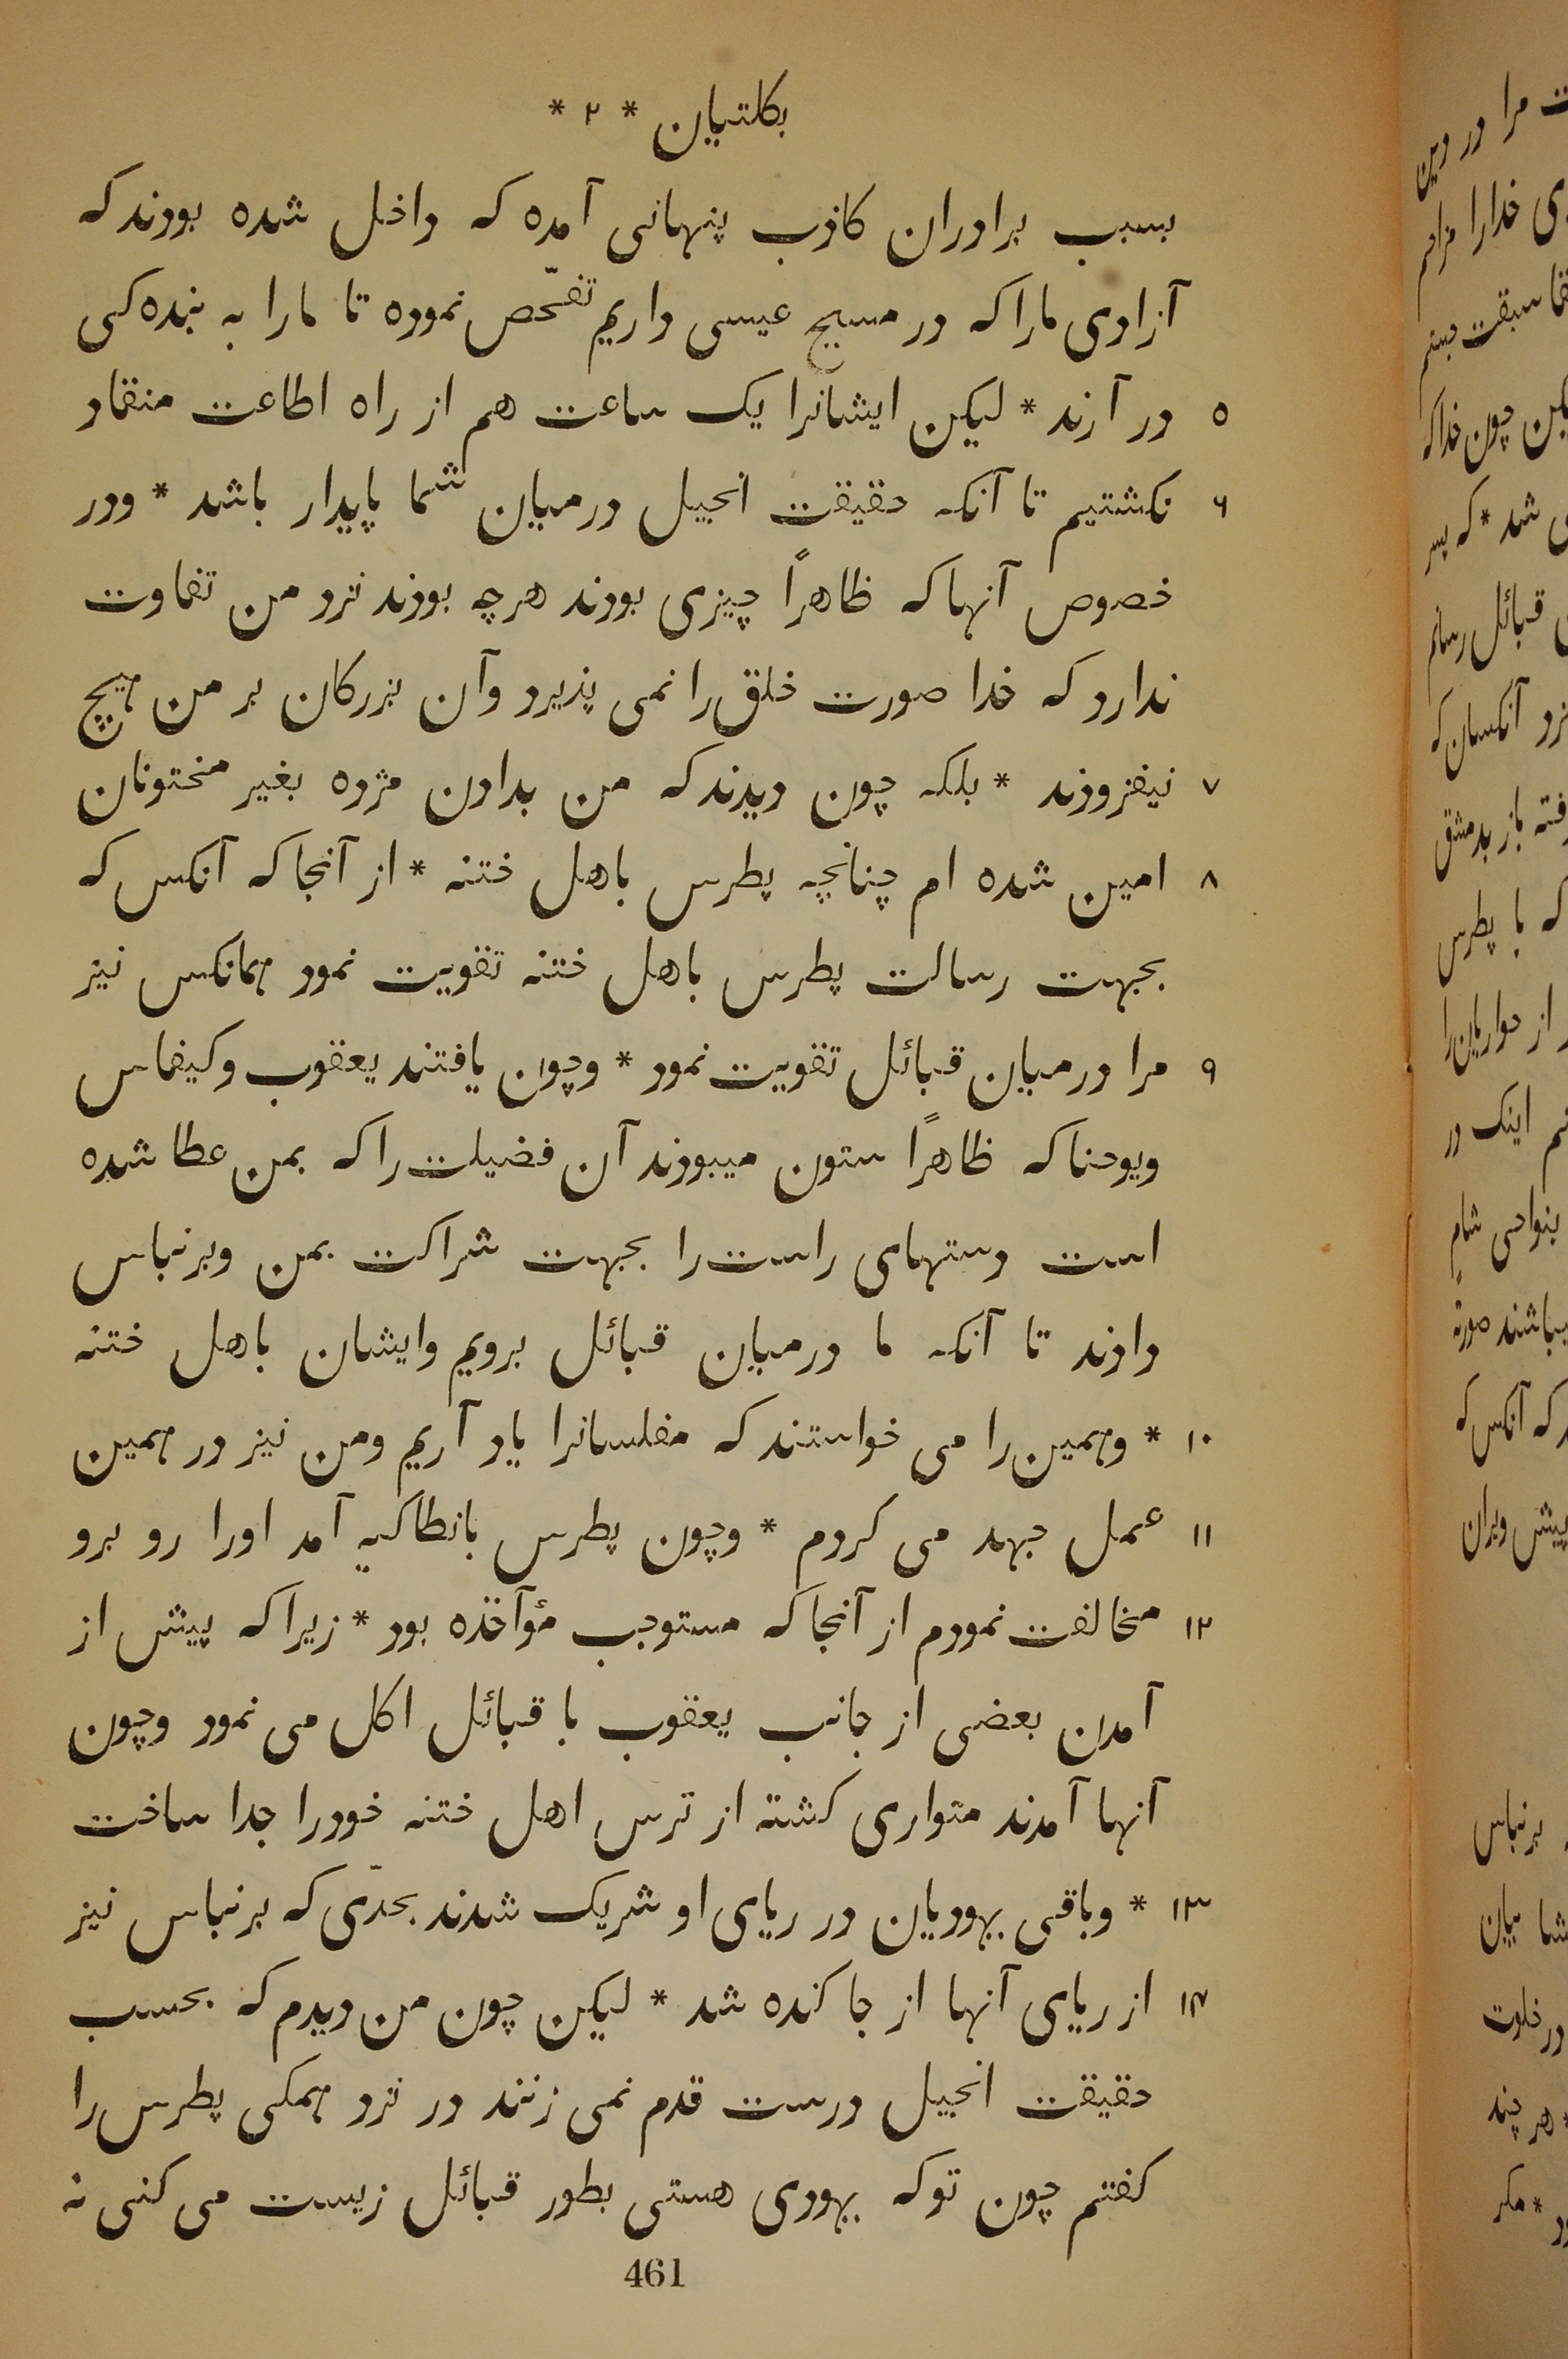 بکلتیان * ۲ *
بسبب برادران کاذب پنهانی آمده که داخل شده بودند که
آزادی مارا که در مسیح عیسی داریم تفحّص نموده تا مارا به بنده کی
۵ در آرند * لیکن ایشانرا یک ساعت هم از راه اطاعت منقاد
۶ نکشتیم تا آنکه حقیقت انجیل درمیان شما پایدار باشد * ودر
خصوص آنها که ظاهراً چیزی بودند هرچه بودند نزد من تفاوت
ندارد که خدا صورت خلق را نمی پذیرد وآن بزرکان بر من هیچ
۷ نیفزودند * بلکه چون دیدند که من بدادن مژده بغیر مختونان
۸ امین شده ام چنانچه پطرس باهل ختنه * از آنجا که آنکس که
بجهت رسالت پطرس باهل ختنه تقویت نمود همانکس نیز
۹ مرا درمیان قبائل تقویت نمود * وچون یافتند یعقوب وکیفاس
ویوحنا که ظاهراً ستون میبودند آن فضیلت را که بمن عطا شده
است دستهای راست را بجهت شراکت بمن وبرنباس
دادند تا آنکه ما درمیان قبائل برویم وایشان باهل ختنه
۱۰ * وهمین را می خواستند که مفلسانرا یاد آریم ومن نیز در همین
۱۱ عمل جهد می کردم * وچون پطرس بانطاکیه آمد اورا رو برو
۱۲ مخالفت نمودم از آنجا که مستوجب مؤآخذه بود * زیرا که پیش از
آمدن بعضی از جانب یعقوب با قبائل اکل می نمود وچون
آنها آمدند متواری کشته از ترس اهل ختنه خودرا جدا ساخت
۱۳ * وباقی یهودیان در ریای او شریک شدند بحدّی که برنباس نیز
۱۴ از ریای آنها از جا کنده شد * لیکن چون من دیدم که بحسب
حقیقت انجیل درست قدم نمی زنند در نزد همکی پطرس را
کفتم چون تو که یهودی هستی بطور قبائل زیست می کنی نه
461
ت مرا در دین
ی خدارا مزاحم
سبقت جستم
چون خدا که
ی شد * که پسر
قبائل رسانم
نزد آنکسان که
باز بدمشق
که با پطرس
از حواریان را
اینک در
بنواحی شام
که آنکس که
پیش ویران
برنباس
بیان
در خلوت
هر چند
* مکر